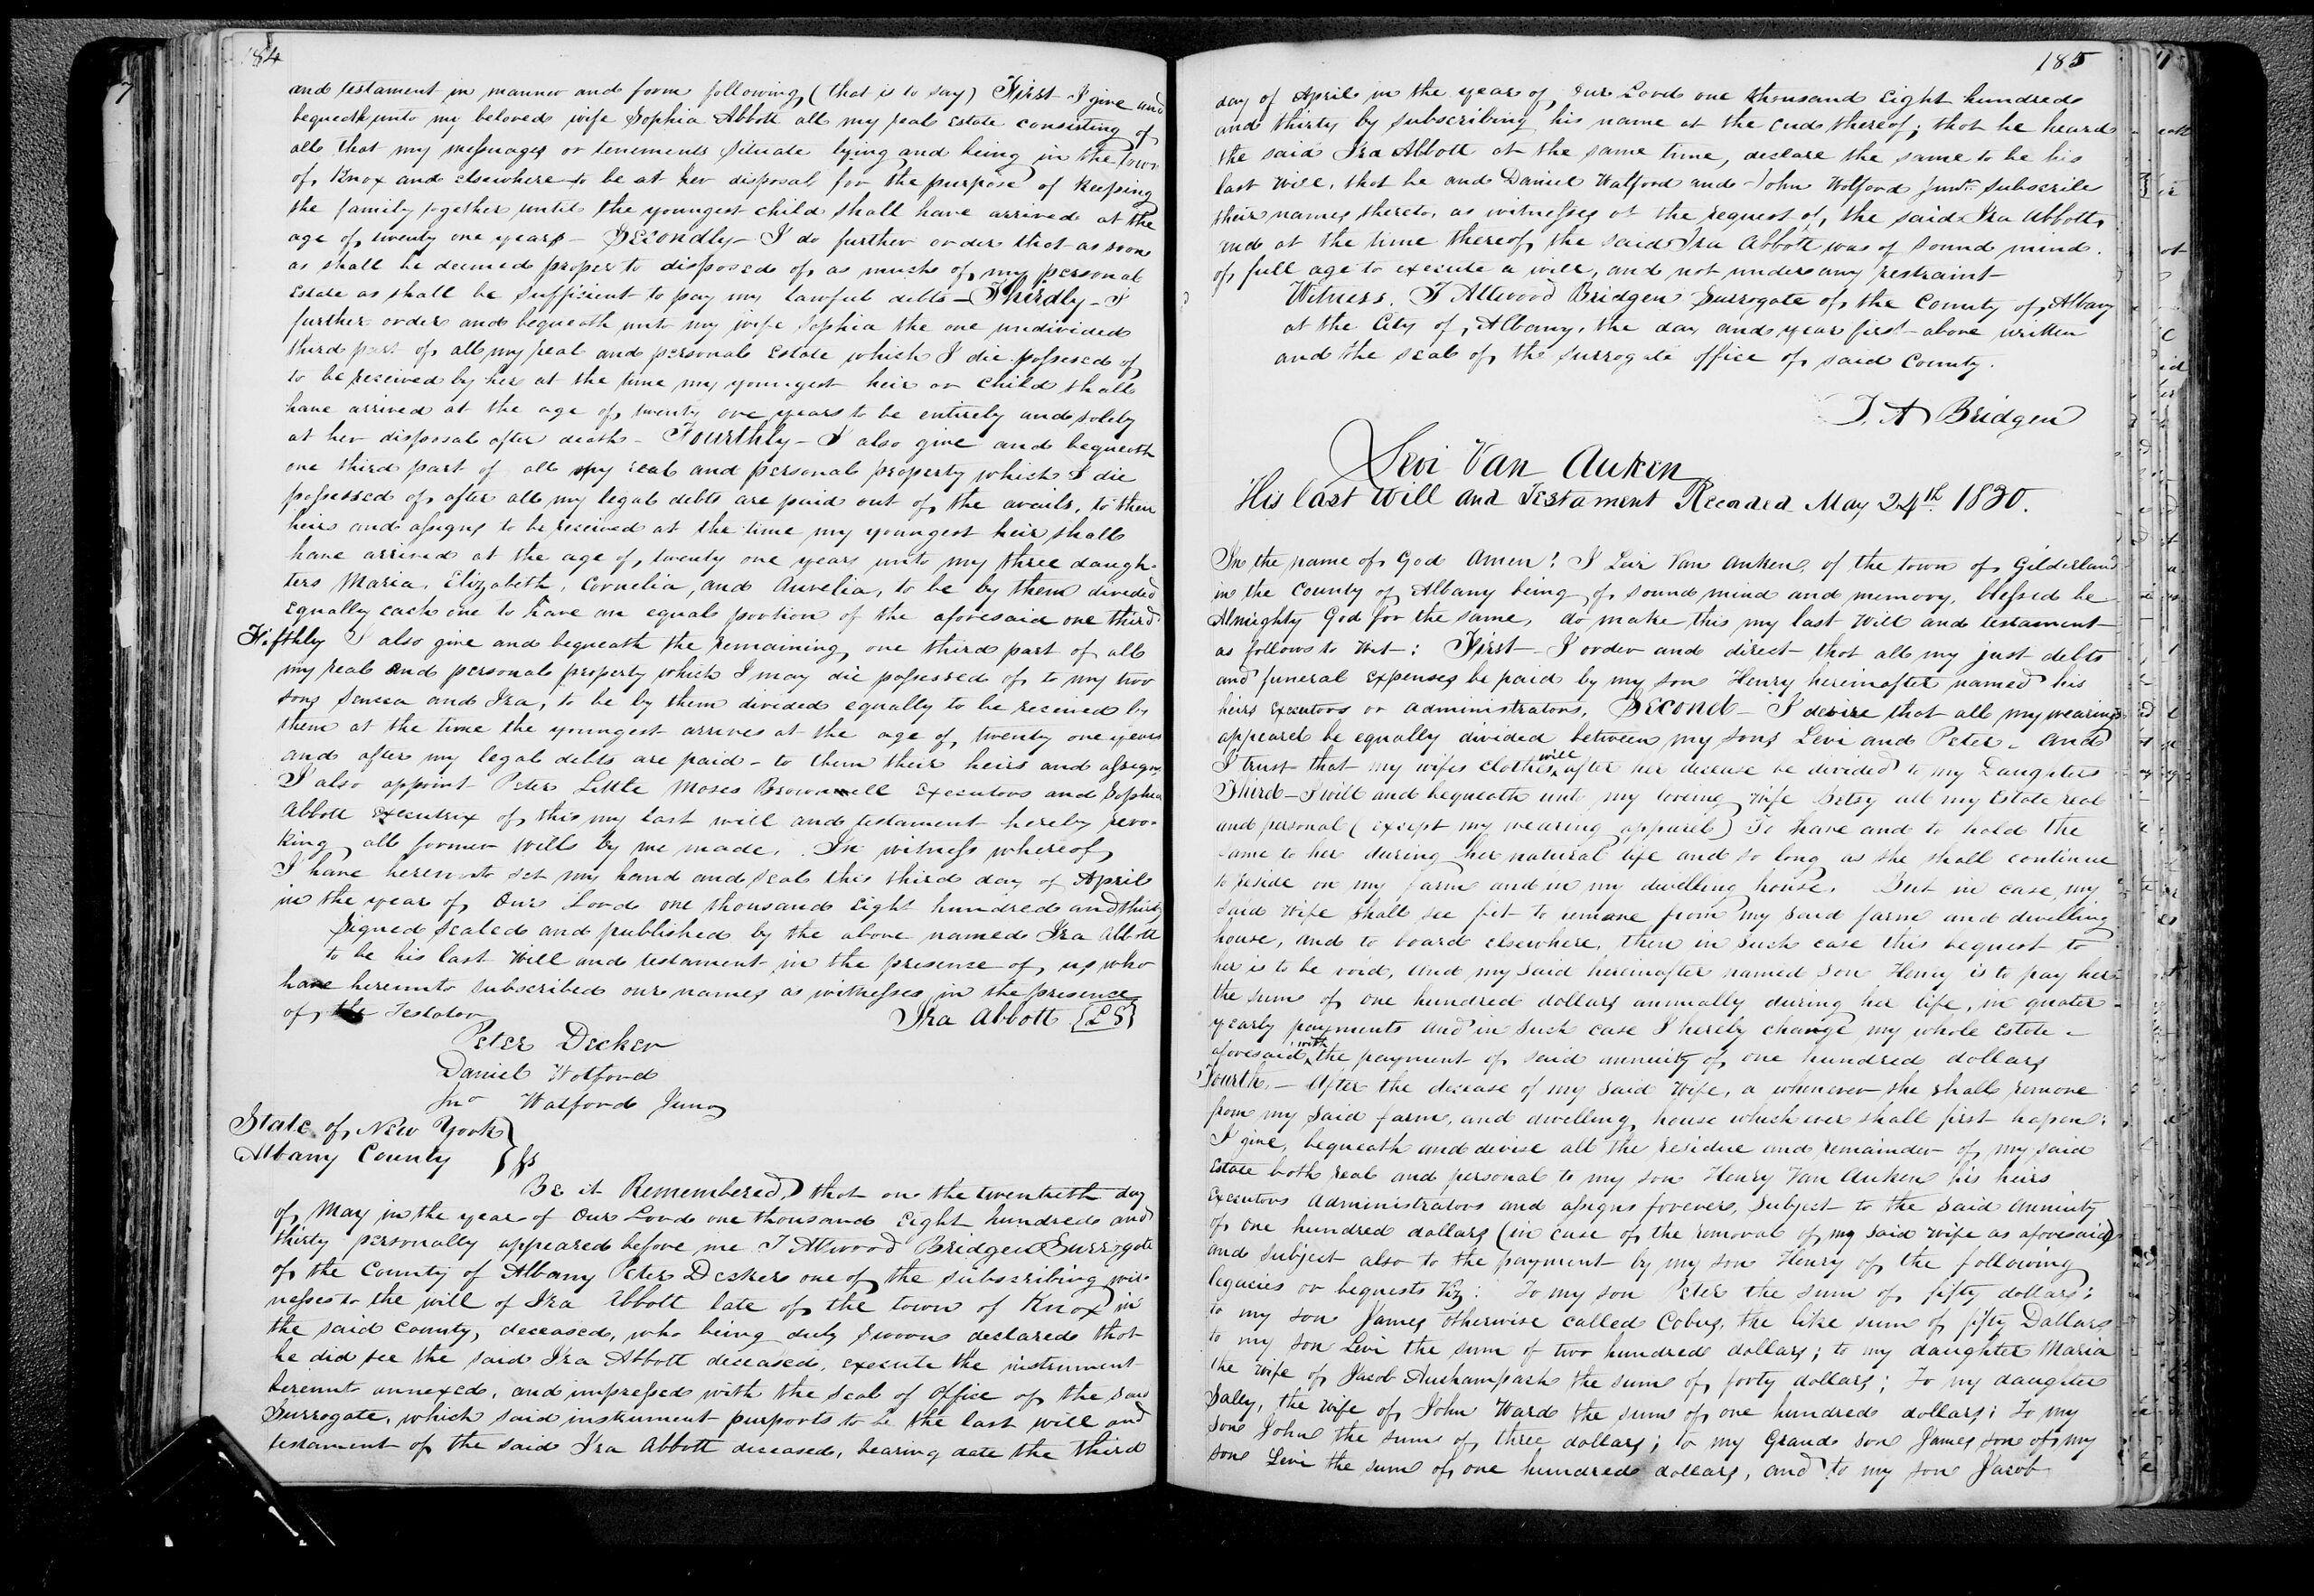 184
and testament in manner and form following, (that is to say) First I give and
bequeath unto my beloved wife Sophia Abbott all my real Estate consisting of
all that my messuages or tenements situate lying and being in the town
of Knox and elsewhere to be at her disposal for the purpose of keeping
the family together until the youngest child shall have arrived at the
age of twenty one years – Secondly – I do further order that as soon
as shall be deemed proper to disposed of as much of my personal
Estate as shall be sufficient to pay my lawful debts – Thirdly – I
further order and bequeath unto my wife Sophia the one undivided
third part of all my real and personal Estate which I die possesed of
to be received by her at the time my youngest heir or child shall
have arrived at the age of twenty one years to be entirely and solely
at her disposal after death – Fourthly – I also give and bequeath
one third part of all my real and personal property which I die
possessed of, after all my legal debts are paid out of the avails, to their
heirs and assigns to be received at the time my youngest heir shall
have arrived at the age of twenty one years unto my three daugh-
ters Maria, Elizabeth, Cornelia, and Aurelia, to be by them divided
equally each one to have an equal portion of the aforesaid one third
Fifthly I also give and bequeath the remaining one third part of all
my real and personal property which I may die possessed of to my two
sons Seneca and Ira, to be by them divided equally to be received by
them at the time the youngest arrives at the age of twenty one years
and after my legal debts are paid – to them their heirs and assigns
I also appoint Peter Little Moses Brownell Executors and Sophia
Abbott Executrix of this my last will and testament hereby revo-
king all former wills by me made. In witness whereof
I have hereunto set my hand and seal this third day of April
in the year of Our Lord one thousand Eight hundred and thirty
Signed Sealed and published by the above named Ira Abbott
to be his last Will and testament in the presence of us who
have hereunto subscribed our names as witnesses in the presence
of the Testator
Ira Abbott {LS}
Peter Decker
Daniel Wolford
Jno Walford Junr
State of New York }
Albany County } ss
Be it Remembered, that on the twentieth day
of May in the year of Our Lord one thousand Eight hundred and
thirty personally appeared before me T Attwood Bridgen Surrogate
of the County of Albany Peter Deckers one of the subscribing wit-
nesses to the will of Ira Abbott late of the town of Knox in
the said County, deceased, who being duly sworn declared that
he did see the said Ira Abbott deceased, execute the instrument
hereunto annexed, and impressed with the seal of office of the said
Surrogate, which said instrument purports to be the last will and
testament of the said Ira Abbott deceased, bearing date the third
185
day of April in the year of Our Lord one thousand Eight hundred
and thirty by subscribing his name at the end thereof; that he heard
the said Ira Abbott at the same time, declare the same to be his
last will, that he and Daniel Walford and John Wolford Junr. subscribe
their names thereto, as witnesses at the request of, the said Ira Abbott,
and at the time thereof, the said Ira Abbott was of sound mind.
of full age to execute a will, and not under any restraint
Witness. T Attwood Bridgen Surrogate of the County of Albany
at the City of Albany, the day and year first above written
and the seal of the surrogate office of said County.
T. A Bridgen
Levi Van Auken
His last Will and Testament Recorded May 24th 1830.
In the name of God Amen! I Levi Van Auken, of the town of Gilderland
in the County of Albany being of sound mind and memory, blessed be
Almighty God for the same, do make this my last Will and testament
as follows to Wit: First – I order and direct that all my just debts
and funeral Expenses be paid by my son Henry hereinafter named his
heirs executors or administrators, Second – I desire that all my wearing
appearel be equally divided between my sons Levi and Peter – and
I trust that my wifes clothes will after her decease be divided to my Daughters
Third – I will and bequeath unto my loveing wife Betsy all my Estate real
and personal (except my wearing apparel) To have and to hold the
same to her during her natural life and so long as she shall continue
to reside on my farm and in my dwelling house. But in case my
said Wife shall see fit to remove from my said farm and dwelling
house, and to board elsewhere, then in such case this bequest to
her is to be void, and my said hereinafter named son Henry is to pay her
the sum of one hundred dollars annually during her life, in quater
yearly payments and in such case I hereby change my whole Estate –
aforesaid with the payment of said annuity of one hundred dollars
Fourth – After the decease of my said Wife, a whenever she shall remove
from my said farm, and dwelling house which ever shall first hapen;
I give, bequeath and devise all the residue and remainder of my said
Estate both real and personal to my son Henry Van Auken his heirs
Executors Administrators and assigns forever, Subject to the said annuity
of one hundred dollars (in case of the removal of my said wife as aforesaid)
and subject also to the payment by my son Henry of the following
legacies or bequests viz: To my son Peter the sum of fifty dollars;
to my son James otherwise called Cobus, the like sum of fifty Dollars
to my son Levi the sum of two hundred dollars; to my daughter Maria
the wife of Jacob Aushampach the sum of forty dollars; To my daughter
Sally, the wife of John Ward the sum of one hundred dollars; To my
son John the sum of three dollars; to my Grand Son James son of my
son Levi the sum of one hundred dollars, and to my son Jacob